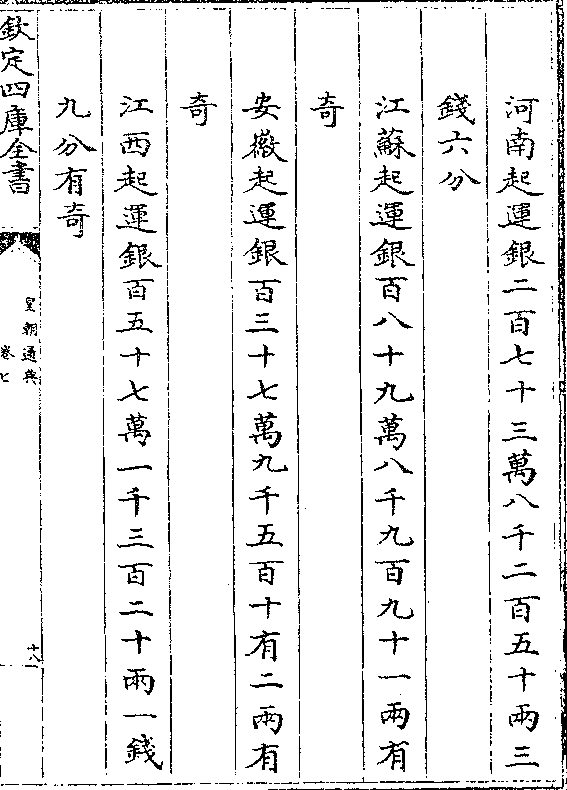 河南起運銀二百七十三萬八千二百五十兩三
錢六分
江蘇起運銀百八十九萬八千九百九十一兩有
奇
安徽起運銀百三十七萬九千五百十有二兩有
奇
江西起運銀百五十七萬一千三百二十兩一錢
九分有奇
欽定四庫全書
皇朝通典
卷七
十八